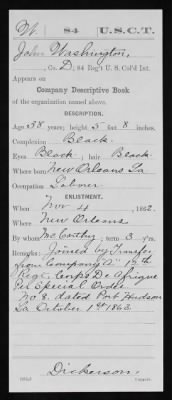 W | 84 | U.S.C.T.
John Washington,
, Co. D; 84 Reg't U. S. Col'd Inf.
Appears on
Company Descriptive Book
of the organization named above.
DESCRIPTION.
Age 38 years; height 5 feet 8 inches.
Complexion Black.
Eyes Black; hair Black
Where born New Orleans La
Occupation Laborer
ENLISTMENT.
When Nov 4, 1862.
Where New Orleans
By whom McCarthy; term 3 y'rs.
Remarks: Joined by Transfer
from Company "A" 12th
Regt. Corps De Afrique
Per Special Order
No 8. dated Port Hudson
La October 1st 1863
Dickerson.
Copyist.